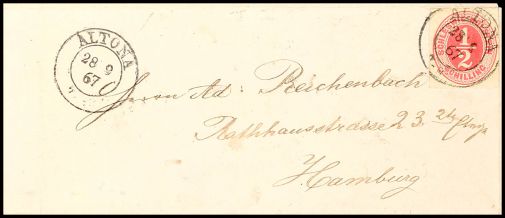 ALTONA
28 9
67
ALTONA
28
67
SCHLES
1/2
SCHILLING
Herrn Ad: Reichenbach
Rathhausstrasse 23. 2te Etage
Hamburg